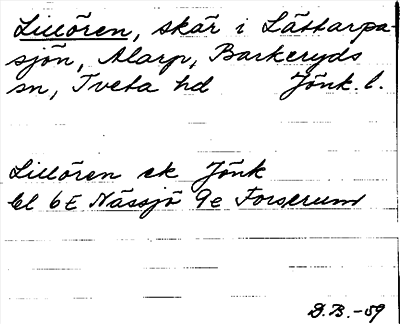 Lillören, skär i Lättarpa-
sjön, Alarp, Barkeryds
sn, Tveta hd Jönk. l.
Lillören ek Jönk
bl 6E Nässjö 9e Forserum
D.B. -59